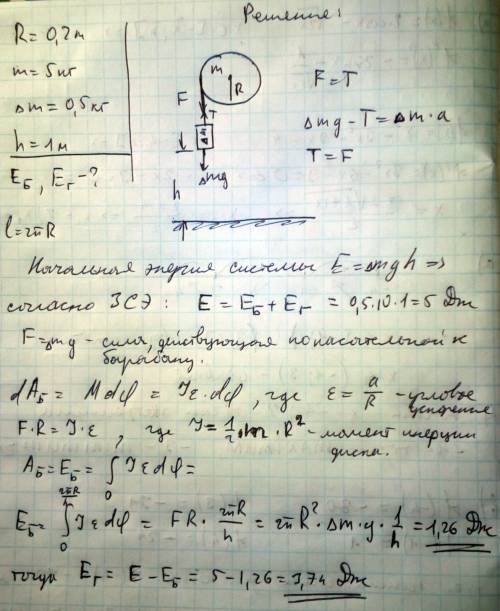 Решение:
R = 0,2 м
m = 5 кг
Δm = 0,5 кг
h = 1 м
E_Б, E_Г - ?
l = 2πR
m
R
F
T
Δm
Δmg
h
F = T
Δmg - T = Δm·a
T = F
Начальная энергия системы E = Δmgh ⇒
согласно ЗСЭ: E = E_Б + E_Г = 0,5·10·1 = 5 Дж
F = Δmg - сила, действующая по касательной к
барабану.
dA_Б = Mdφ = Jε·dφ, где ε = a/R - угловое
ускорение
F·R = J·ε, где J = 1/2 m·R² - момент инерции
диска.
A_Б = E_Б = ∫₀ Jεdφ =
E_Б = ∫₀^(2πR/h) Jεdφ = FR · 2πR/h = 2πR² · Δm·g · 1/h = 1,26 Дж
тогда E_Г = E - E_Б = 5 - 1,26 = 3,74 Дж